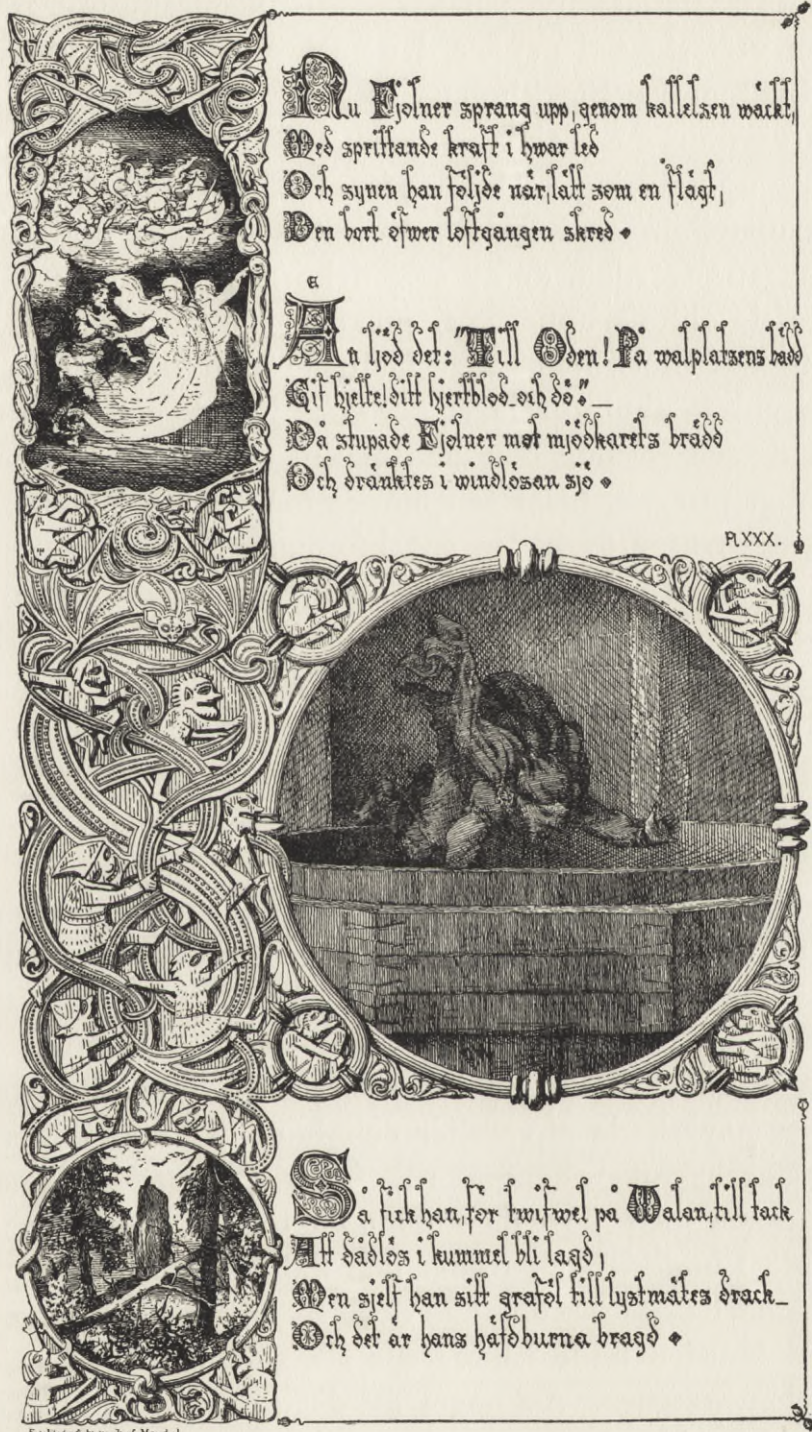 Nu Fjolner sprang upp, genom kallelsen wäckt,
Med sprittande kraft i hwar led
Och synen han följde när, lätt som en flägt,
Den bort öfwer loftgången skred
Än ljöd det: "Till Oden! På walplatsens bädd
Gif hjelte! ditt hjertblod och dö"_
Då stupade Fjolner mot mjödkarets brädd
Och dränktes i windlösan sjö
Pl XXX.
Så fick han, för twifwel på Walan, till tack
Att dådlös i kummel bli lagd,
Men sjelf han sitt graföl till lystmätes drack_
Och det är hans häfdburna bragd